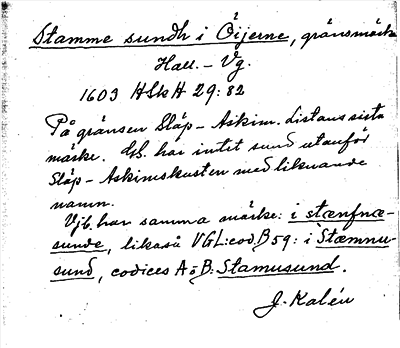 Stamme sundh i Öijerne, gränsmärke
Hall. – Vg.
1603 HSkH 29: 82
På gränsen Släp – Askim. Listans sista
märke. GS. har intet sund utanför
Släp – Askimskusten med liknande
namn.
Vjb. har samma märke: i stænfnæ-
sunde, likaså VGL: cod. B 59: i Stæmnu-
sund, codices A o B: Stamusund.
J. Kalén